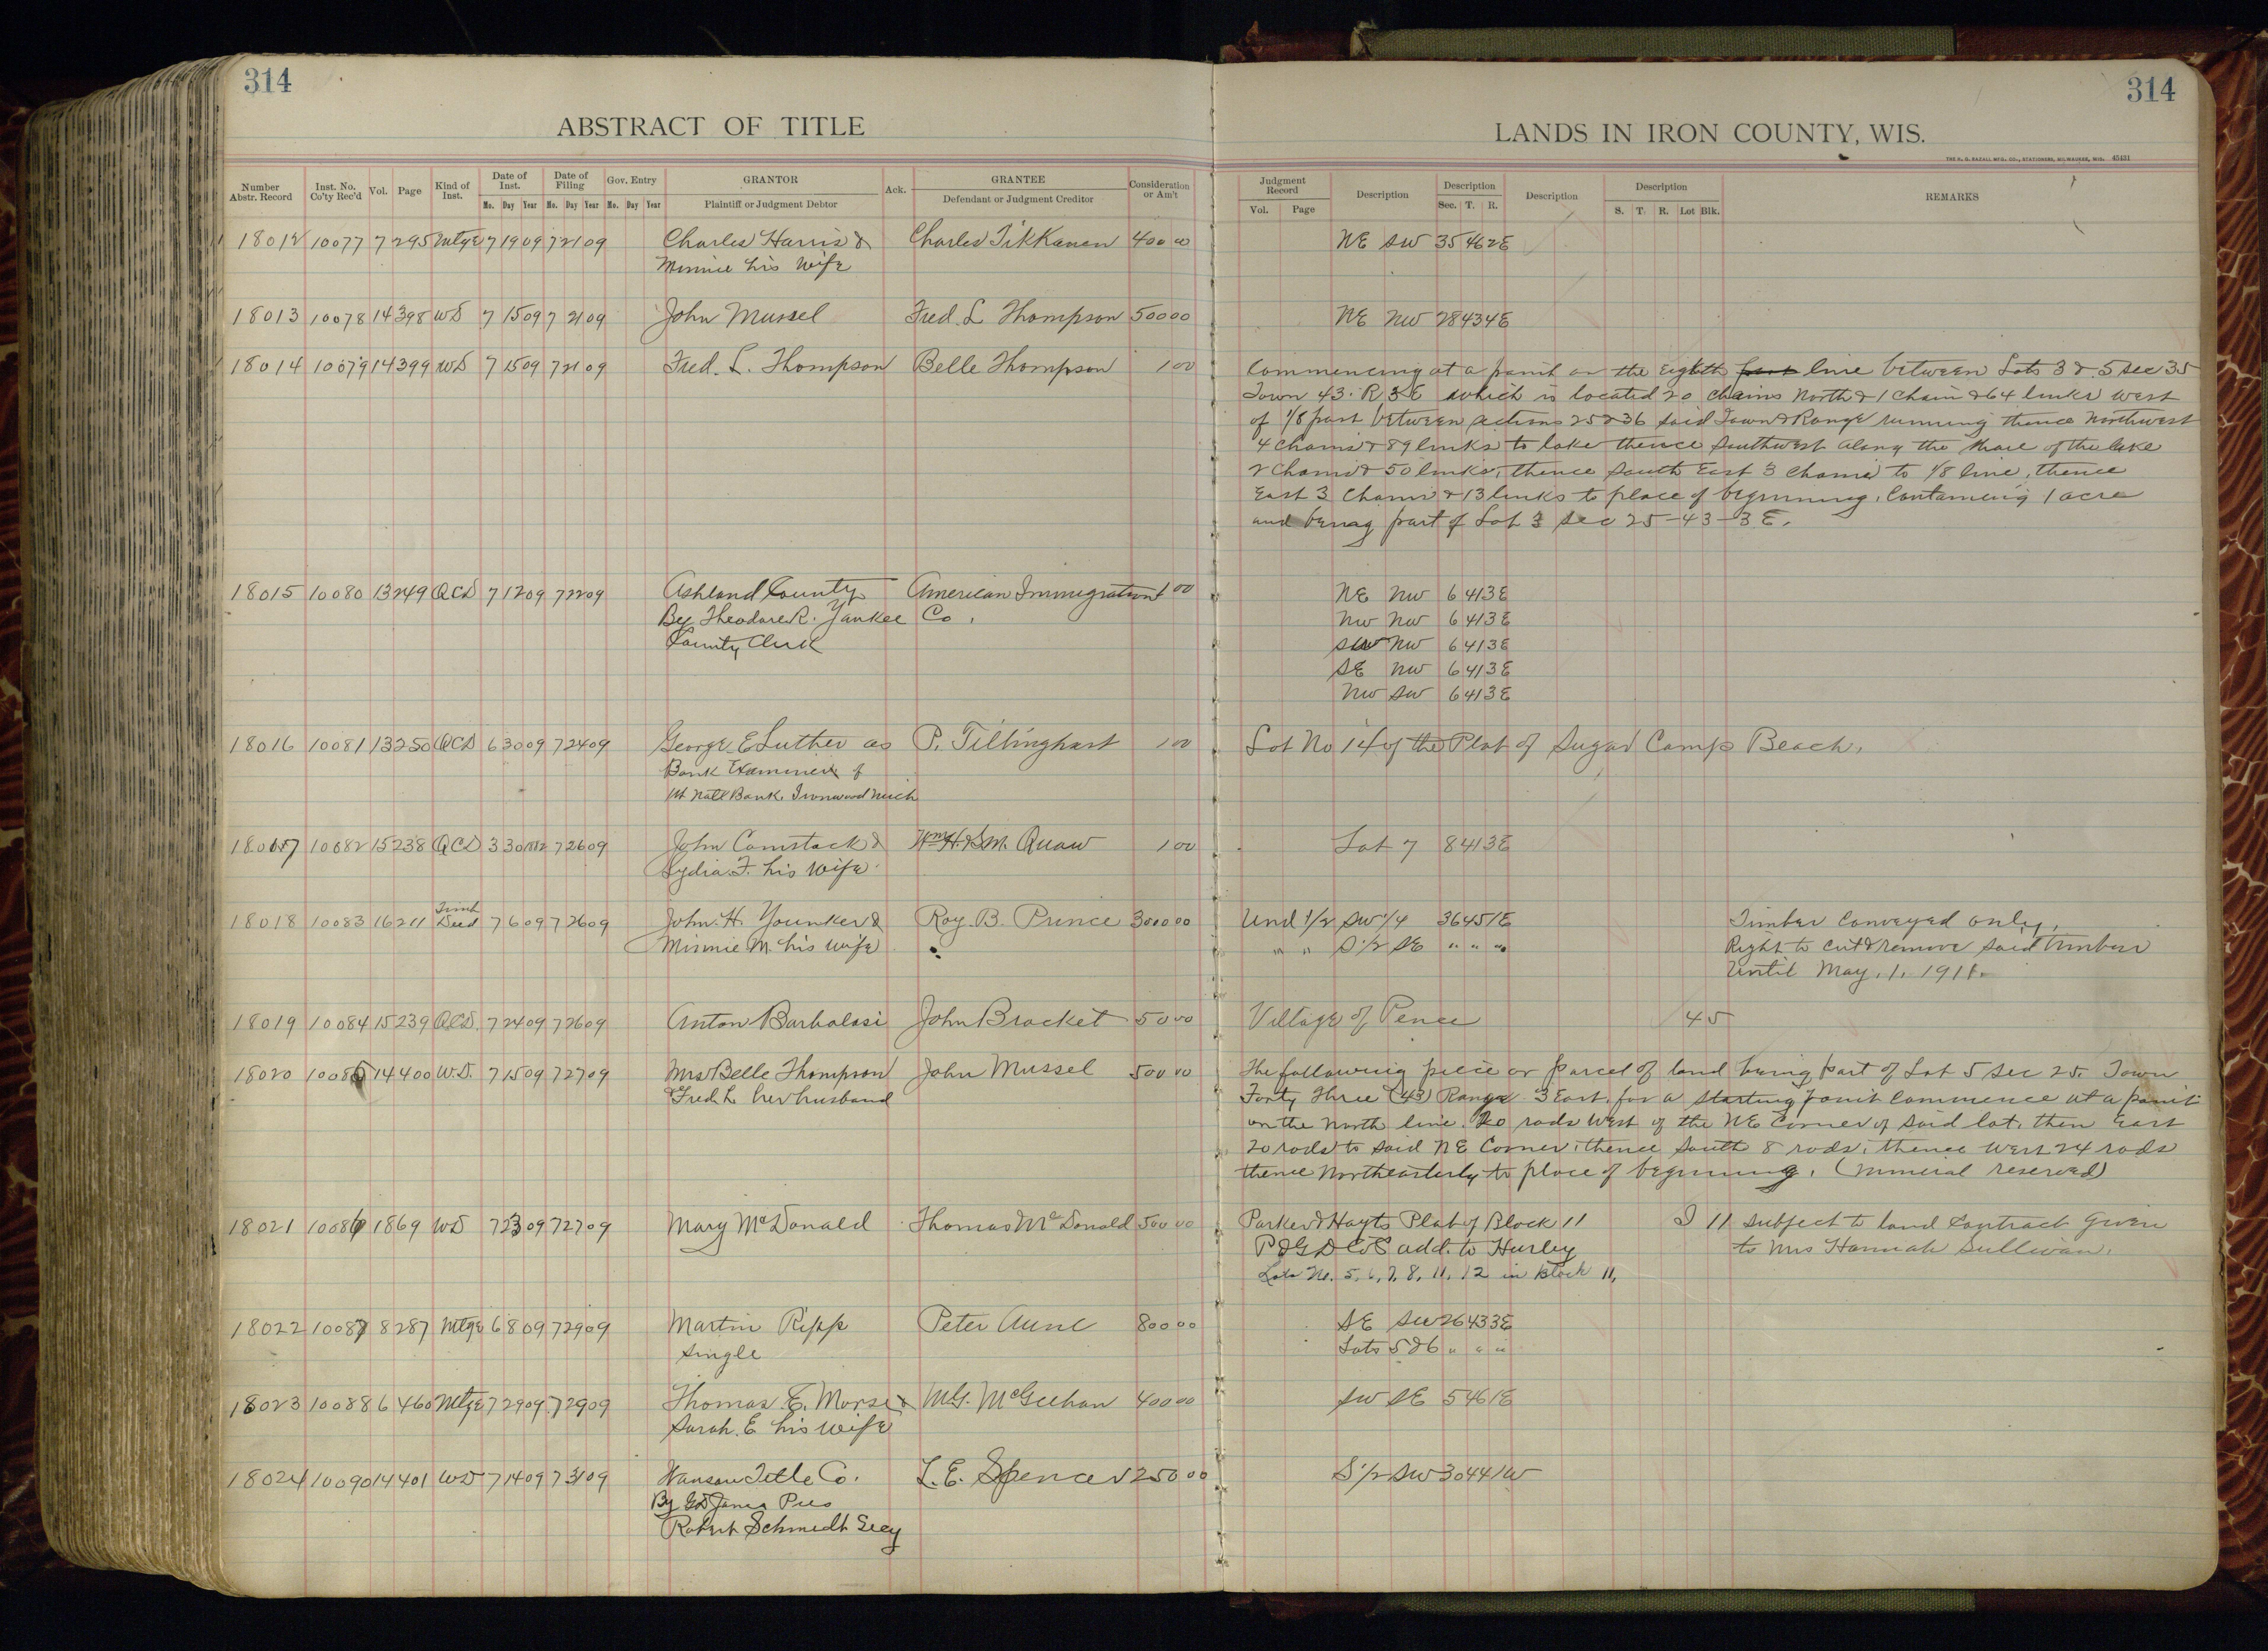 314
314
ABSTRACT OF TITLE
LANDS IN IRON COUNTY, WIS.
THE H. G. RAZALL MFG. CO., STATIONERS, MILWAUKEE, WIS. 45431
Number Abstr. Record Inst. No. Co'ty Rec'd Vol. Page Kind of Inst. Date of Inst. Date of Filing Gov. Entry GRANTOR Ack. GRANTEE Consideration or Am't
Mo. Day Year Mo. Day Year Mo. Day Year Plaintiff or Judgment Debtor Defendant or Judgment Creditor
Judgment Record Description Description Description Description REMARKS
Vol. Page Sec. T. R. S. T. R. Lot Blk.
18012 10077 7 295 Mtge 7 19 09 7 21 09 Charles Harris & Charles Tikkanen 400 00 NE SW 35 46 2E
Minnie his wife
18013 10078 14 398 WD 7 15 09 7 21 09 John Mussel Fred. L Thompson 500 00 NE NW 28 43 4E
18014 10079 14 399 WD 7 15 09 7 21 09 Fred. L. Thompson Belle Thompson 1 00 Commencing at a point on the Eighth line between Lots 3 & 5 Sec 35
Town 43. R 3 E which is located 20 chains North & 1 chain & 64 links West
of 1/8 post between sections 25 & 36 said Town & Range running thence Northwest
4 chains & 89 links to lake thence Southwest along the shore of the lake
2 chains & 50 links, thence South East 3 chains to 1/8 line, thence
East 3 chains & 13 links to place of beginning. Containing 1 acre
and being part of Lot 3 Sec 25-43-3 E.
18015 10080 13 249 QCD 7 12 09 7 22 09 Ashland County American Immigration 1 00 NE NW 6 41 3E
By Theodore R. Yankee Co. NW NW 6 41 3E
County Clerk SW NW 6 41 3E
SE NW 6 41 3E
NW SW 6 41 3E
18016 10081 13 250 QCD 6 30 09 7 24 09 George E Luther as P. Tillinghast 1 00 Lot No 14 of the Plat of Sugar Camp Beach.
Bank Examiner of
1st Natl Bank. Ironwood Mich
18017 10082 15 238 QCD 3 30 7 26 09 John Comstock & Wm H. & S.M. Quaw 1 00 Lot 7 8 41 3E
Lydia. F. his wife
18018 10083 16 211 Timb Deed 7 6 09 7 26 09 John. H. Younker & Roy. B. Prince 3000 00 Und 1/2 SW 1/4 36 45 1E Timber Conveyed only.
Minnie M. his wife " " S 1/2 SE " " " Right to cut & remove said timber
Until May. 1. 1911.
18019 10084 15 239 QCD. 7 24 09 7 26 09 Anton Barbalasi John Bracket 50 00 Village of Pence 45
18020 10085 14 400 W.D. 7 15 09 7 27 09 Mrs Belle Thompson John Mussel 500 00 The following piece or parcel of land being part of Lot 5 Sec 25. Town
& Fred. L. her husband Forty Three (43) Range 3 East. for a starting point commence at a point
on the North line. 20 rods West of the NE Corner of said lot. then East
20 rods to said NE Corner. thence South 8 rods. thence West 24 rods
thence Northeasterly to place of beginning. (Mineral reserved)
18021 10086 18 69 WD 7 23 09 7 27 09 Mary McDonald Thomas McDonald 500 00 Parker & Hayts Plat of Block 11 I 11 subject to land contract given
P & G D Co's add. to Hurley to Mrs Hannah Sullivan.
Lots No. 5, 6, 7, 8, 11, 12 in Block 11,
18022 10087 8 287 Mtge 6 8 09 7 29 09 Martin Ripp Peter Aune 800 00 SE SW 26 43 3E
Single Lots 5 & 6 " " "
18023 10088 6 460 Mtge 7 29 09 7 29 09 Thomas. E. Morse & M.G. McGeehan 400 00 SW SE 5 46 1E
Sarah. E his wife
18024 10090 14 401 WD 7 14 09 7 31 09 Wausau Title Co. L. E. Spencer 250 00 S 1/2 SW 30 44 1W
By G.D. Jones Pres
Robert Schmidt Secy